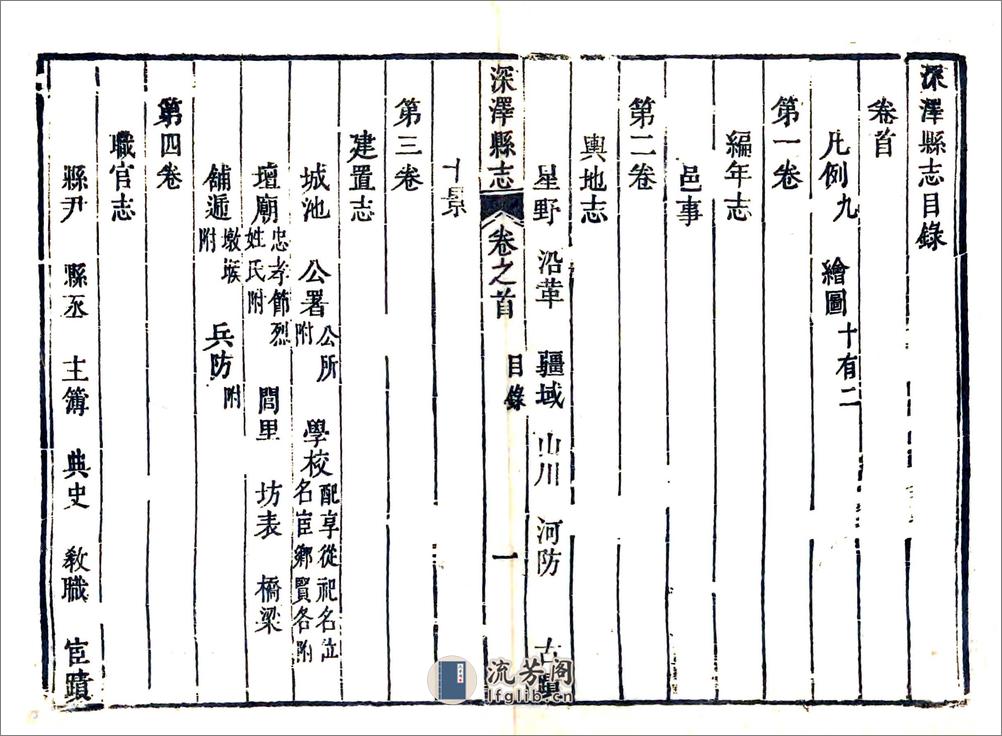 深澤縣志目錄
卷首
凡例九 繪圖十有二
第一卷
編年志
邑事
第二卷
輿地志
星野 沿革 疆域 山川 河防 古蹟
深澤縣志 卷之首 目錄 一
十景
第三卷
建置志
城池 公署公所附 學校配享從祀名位名宦鄉賢各附
壇廟忠孝節烈姓氏附 閭里 坊表 橋梁
舖遞墩堠附 兵防附
第四卷
職官志
縣尹 縣丞 主簿 典史 敎職 宦蹟
流芳閣
lfglib.cn